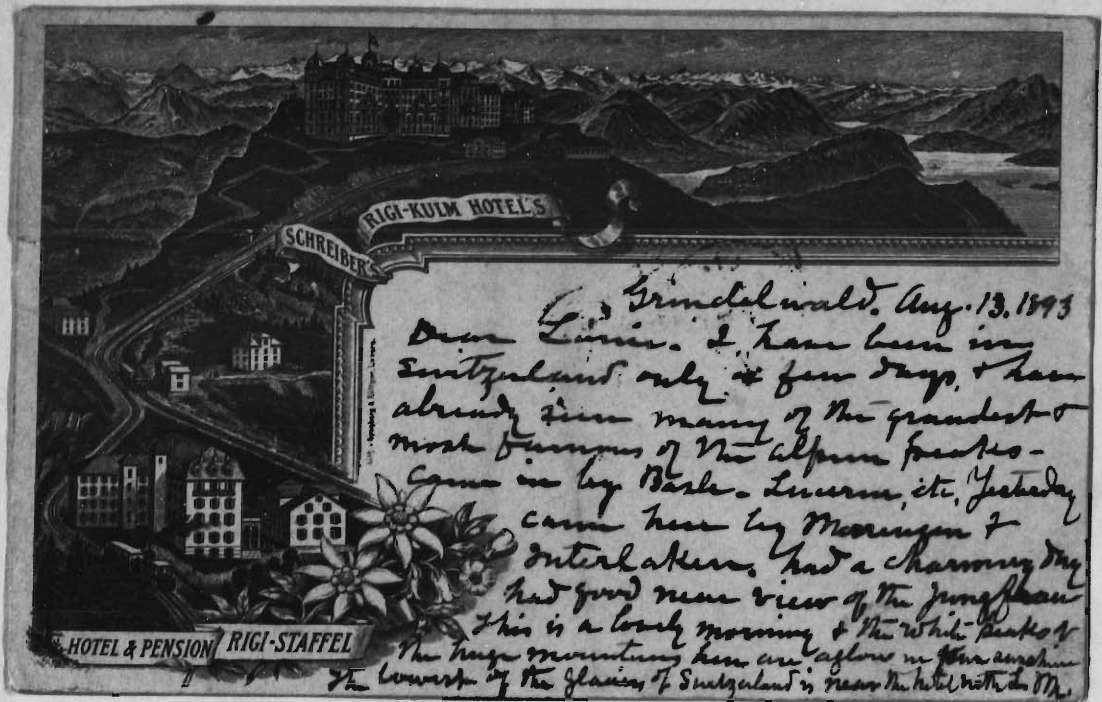 SCHREIBER'S RIGI-KULM HOTEL'S
Grindelwald. Aug. 13. 1893
Dear I have been in
Switzerland only a few days, & have
already seen many of the grandest &
most famous of the alpine peaks -
Came in by Basle - Lucerne, etc. Yesterday
came here by &
Interlaken. had a charming day
had good near view of the Jungfrau
This is a lovely morning & the white peaks of
the huge mountains here are aglow in sunshine
The lowest of the glaciers of Switzerland is near the hotel
HOTEL & PENSION RIGI-STAFFEL